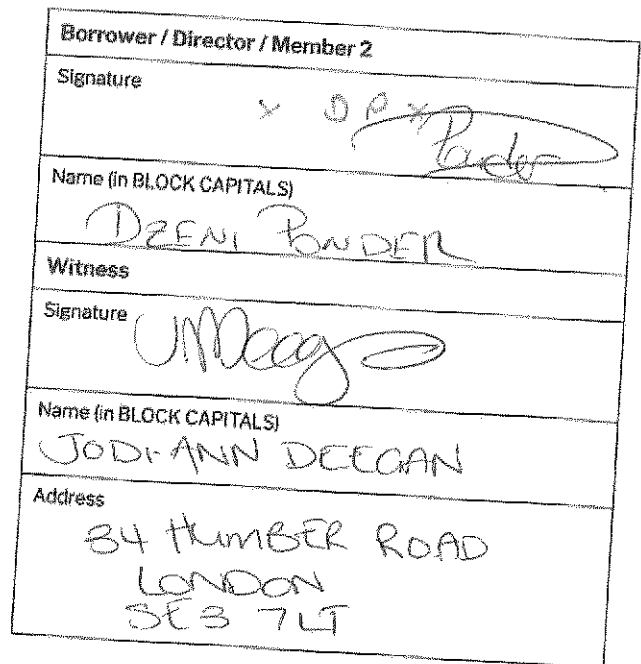 Borrower / Director / Member 2
Signature
x D P x
Ponder
Name (in BLOCK CAPITALS)
DZENI PONDER
Witness
Signature
Name (in BLOCK CAPITALS)
JODI-ANN DEEGAN
Address
84 HUMBER ROAD
LONDON
SE3 7LT